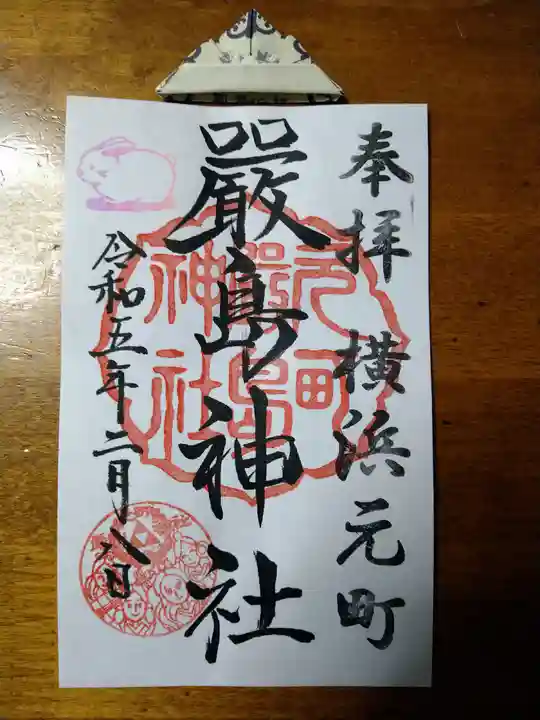 奉拝 横浜元町
嚴島神社
令和五年二月八日
元町
嚴島
神社